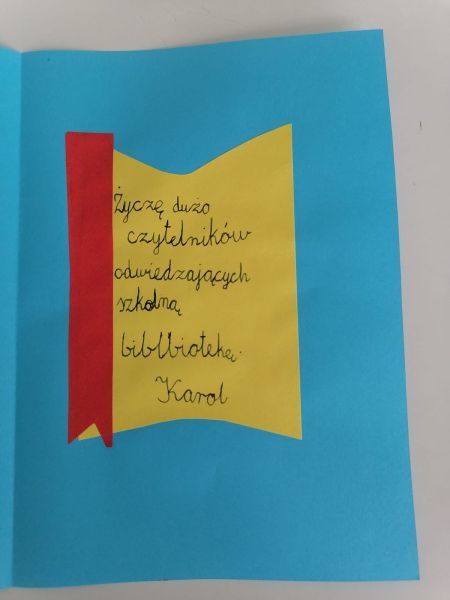 Życzę dużo
czytelników
odwiedzających
szkolną
bibllbiotekę.
Karol